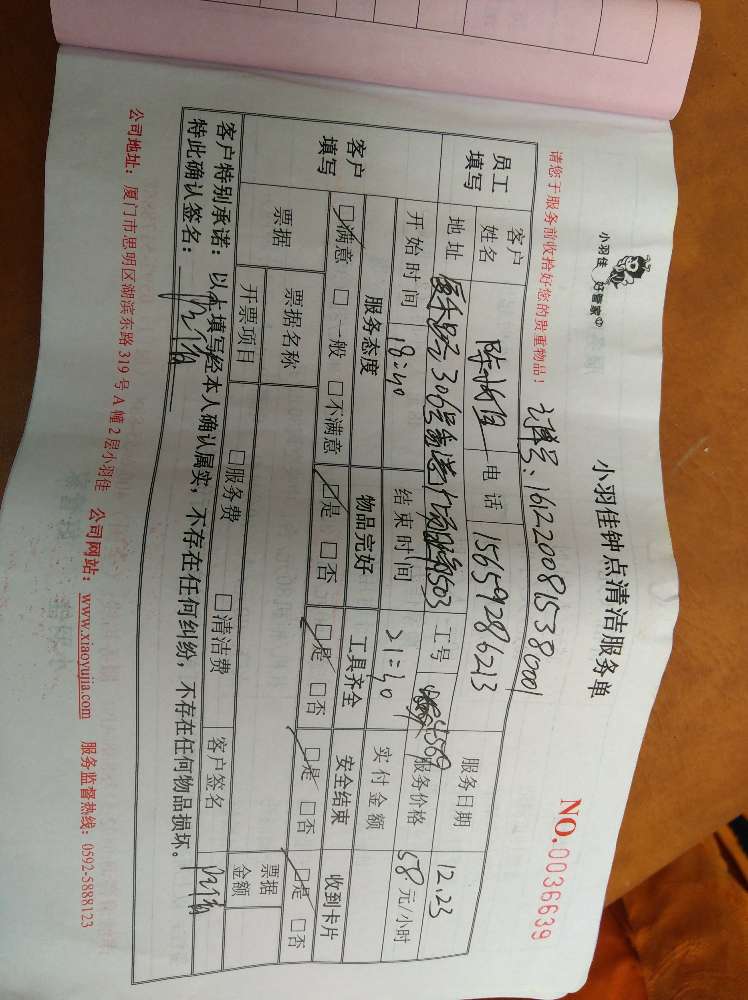 小羽佳 好管家
小羽佳钟点清洁服务单
NO.0036639
请您于服务前收拾好您的贵重物品!
订单号:1612200815380001
员工填写
客户姓名 电话 15659286213 服务日期 12.23
地址 306号 503 工号 服务价格 58 元/小时
开始时间 18:40 结束时间 21:40 实付金额
客户填写
服务态度 物品完好 工具齐全 安全结束 收到卡片
☑满意 □一般 □不满意 ☑是 □否 ☑是 □否 ☑是 □否 ☑是 □否
票据 票据名称 □服务费 □清洁费 票据金额
开票项目 客户签名
客户特别承诺:以上填写经本人确认属实,不存在任何纠纷,不存在任何物品损坏。
特此确认签名:
公司地址:厦门市思明区湖滨东路319号A幢2层小羽佳 公司网站:www.xiaoyujia.com 服务监督热线:0592-5888123